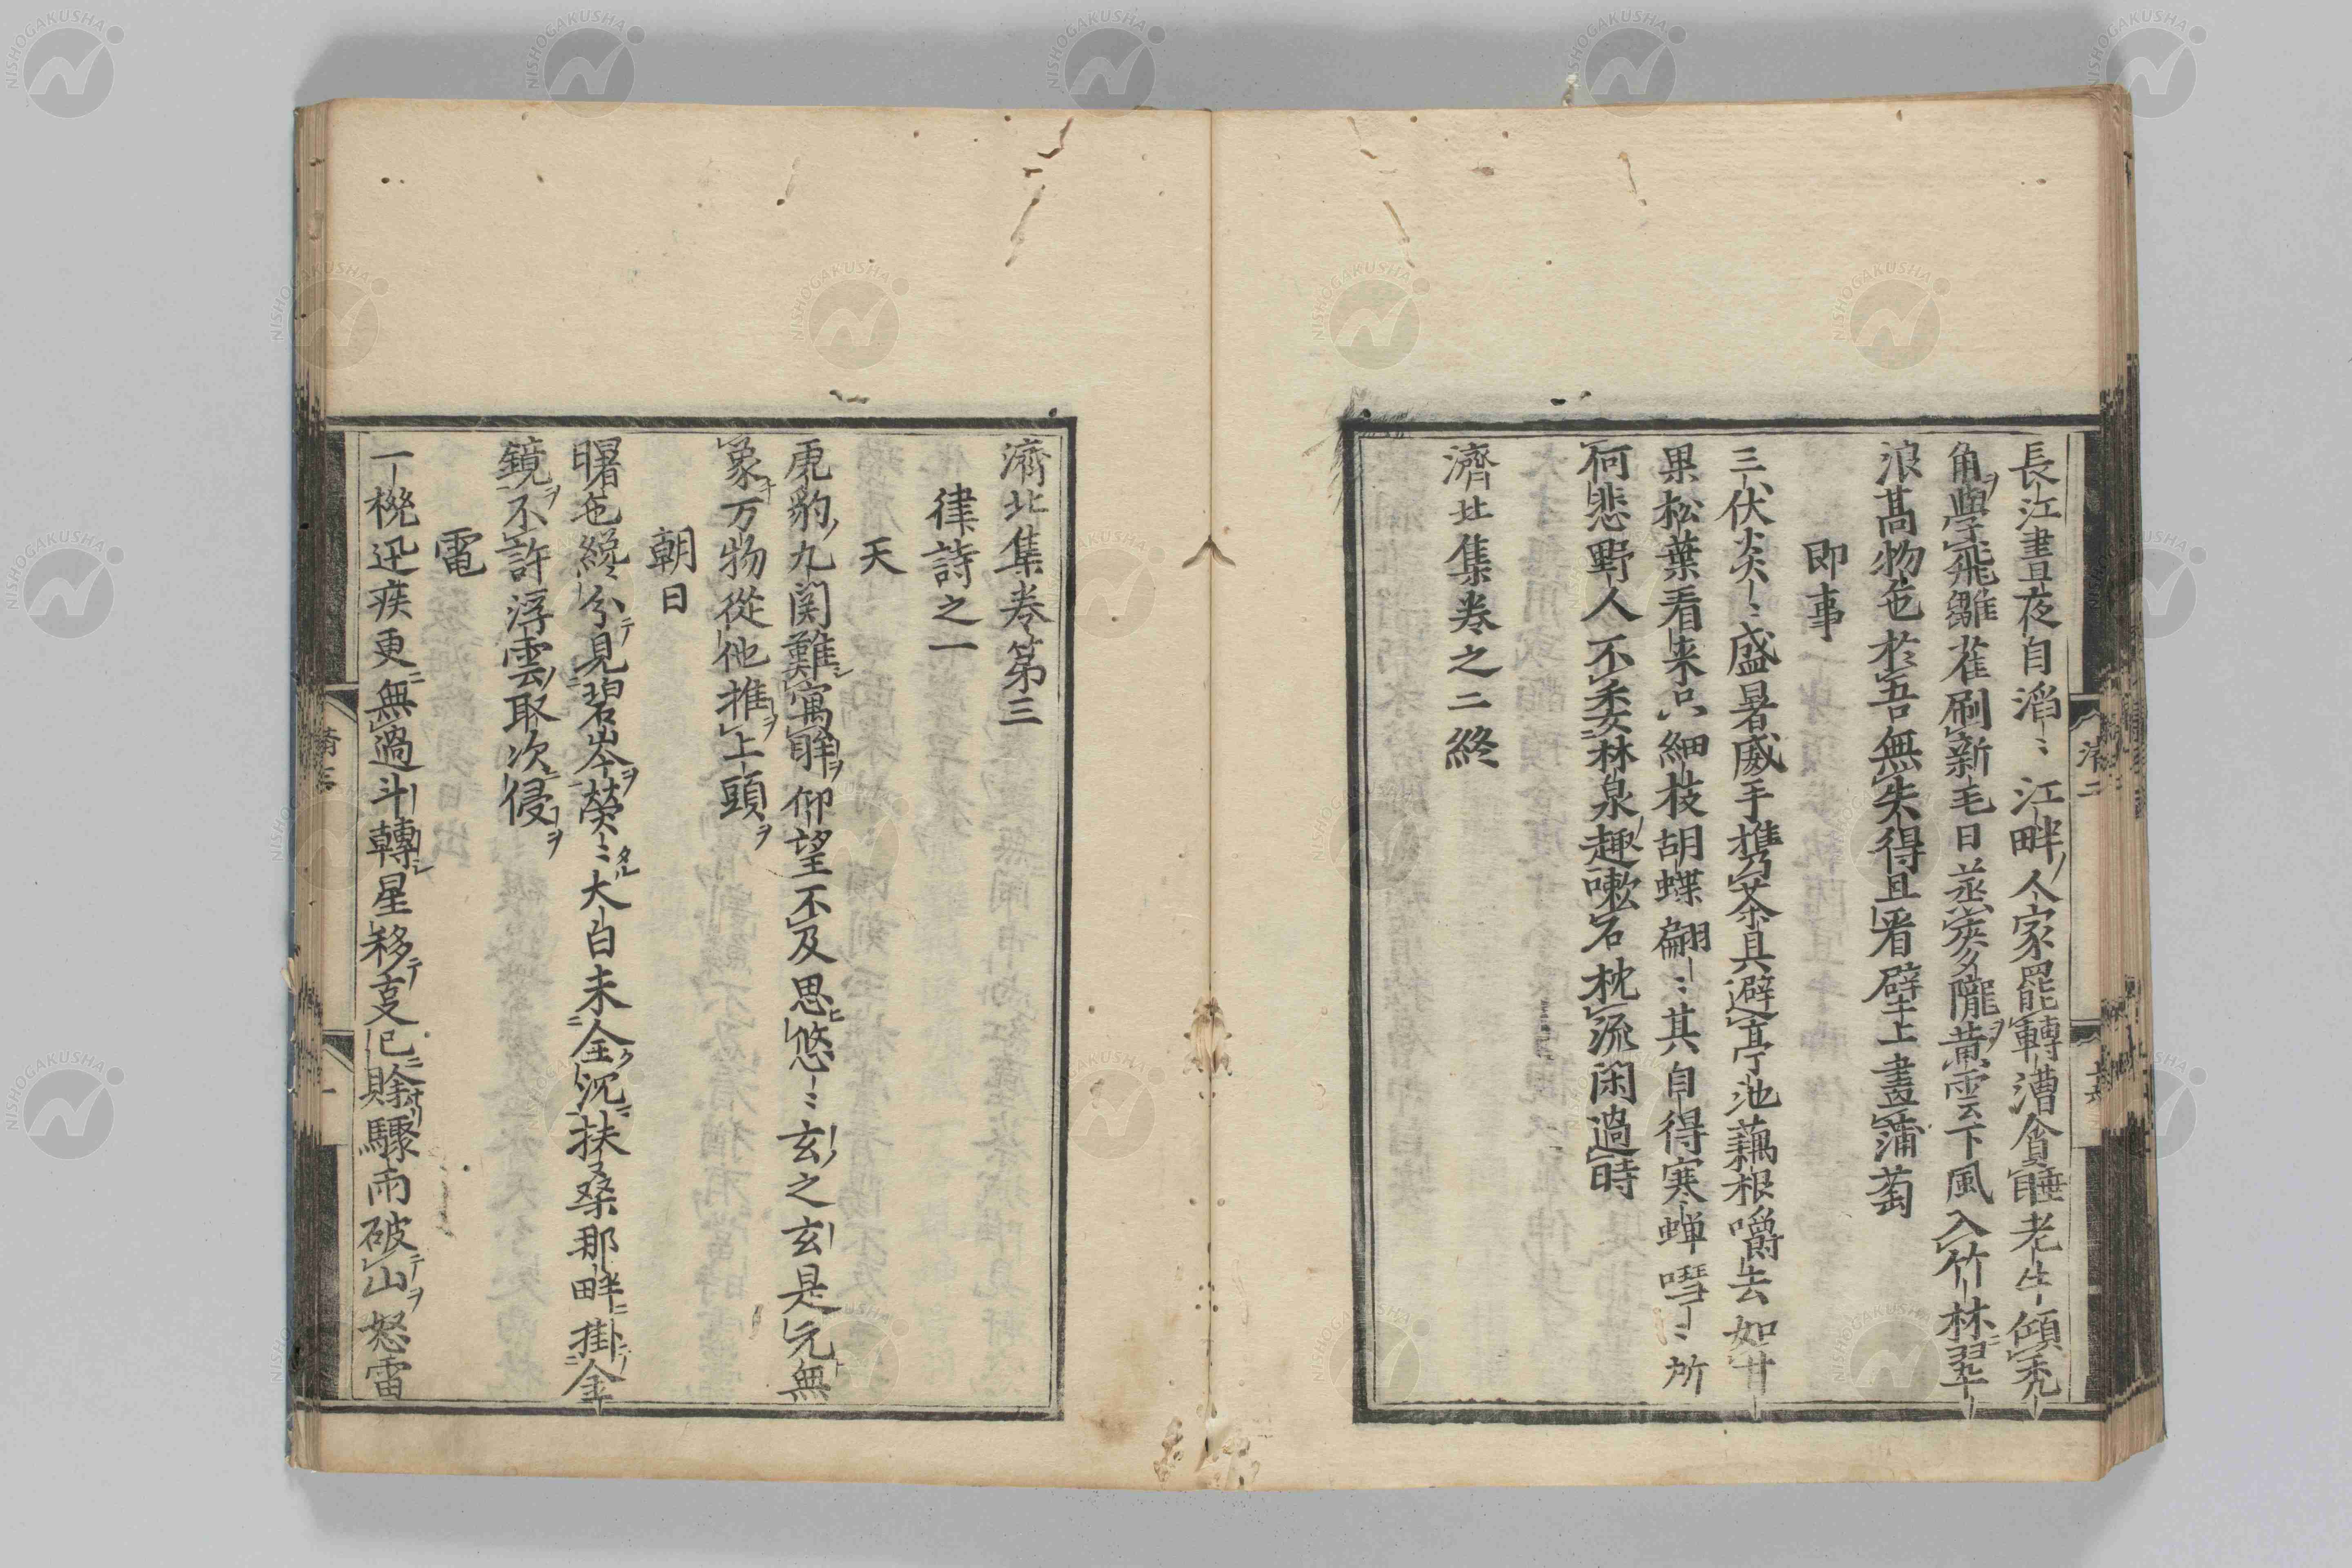 長江晝夜自滔〻江畔人家罷轉漕貪睡老牛傾禿
角學飛雛雀刷新毛日蒸麥隴黄雲下風入竹林翠
浪髙物色於吾無失得且看壁上畫蒲萄
即事
三伏炎〻盛暑威手携茶具避亭池藕根嚼去如甘
果松葉看来只細枝胡蝶翩〻其自得寒蝉嘒〻所
何悲野人不委林泉趣嗽石枕流閑過時
濟北集卷之二終
濟二
濟北集卷第三
律詩之一
天
虎豹九関難寓眸仰望不及思悠〻玄之玄是元無
象万物從他推上頭
朝日
曙色纔分見碧岑熒〻大白未全沉扶桑那畔掛金
鏡不許浮雲取次侵
電
一機迅疾更無過斗轉星移亙已賒驟雨破山怒雷
濟三
一
NISHOGAKUSHA